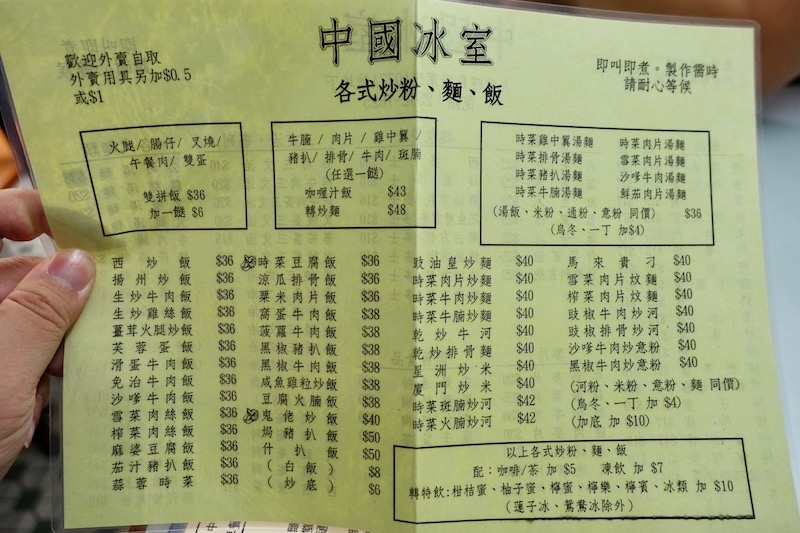 中國冰室
各式炒粉、麵、飯
歡迎外賣自取
外賣用具另加$0.5
或$1
即叫即煮。製作需時
請耐心等候
火腿/ 腸仔/ 叉燒/
午餐肉/ 雙蛋
雙拼飯 $36
加一餸 $6
牛腩 / 肉片 / 雞中翼 /
豬扒/ 排骨/ 牛肉/ 斑腩
(任選一餸)
咖喱汁飯 $43
轉炒麵 $48
時菜雞中翼湯麵 時菜肉片湯麵
時菜排骨湯麵 雪菜肉片湯麵
時菜豬扒湯麵 沙嗲牛肉湯麵
時菜牛腩湯麵 鮮茄肉片湯麵
(湯飯、米粉、通粉、意粉 同價) $36
(烏冬、一丁 加$4)
西炒飯 $36
揚州炒飯 $36
生炒牛肉飯 $36
生炒雞絲飯 $36
薑茸火腿炒飯 $36
芙蓉蛋飯 $36
滑蛋牛肉飯 $36
免治牛肉飯 $36
沙嗲牛肉飯 $36
雪菜肉絲飯 $36
榨菜肉絲飯 $36
麻婆豆腐飯 $36
茄汁豬扒飯 $36
蒜蓉時菜 $36
時菜豆腐飯 $36
涼瓜排骨飯 $36
粟米肉片飯 $36
窩蛋牛肉飯 $38
菠蘿牛肉飯 $38
黑椒豬扒飯 $38
黑椒牛肉飯 $38
咸魚雞粒炒飯 $38
豆腐火腩飯 $38
鬼佬炒飯 $40
焗豬扒飯 $50
什扒飯 $50
(白飯) $8
(炒底) $6
豉油皇炒麵 $40
時菜肉片炒麵 $40
時菜牛肉炒麵 $40
時菜牛腩炒麵 $40
乾炒牛河 $40
乾炒排骨麵 $40
星洲炒米 $40
廈門炒米 $40
時菜斑腩炒河 $42
時菜火腩炒河 $42
馬來貴刁 $40
雪菜肉片炆麵 $40
榨菜肉片炆麵 $40
豉椒牛肉炒河 $40
豉椒排骨炒河 $40
沙嗲牛肉炒意粉 $40
黑椒牛肉炒意粉 $40
(河粉、米粉、意粉、麵 同價)
(烏冬、一丁 加 $4)
(加底 加 $10)
以上各式炒粉、麵、飯
配：咖啡/茶 加 $5 凍飲 加 $7
轉特飲:柑桔蜜、柚子蜜、檸蜜、檸樂、檸賓、冰類 加 $10
(蓮子冰、鴛鴦冰除外)